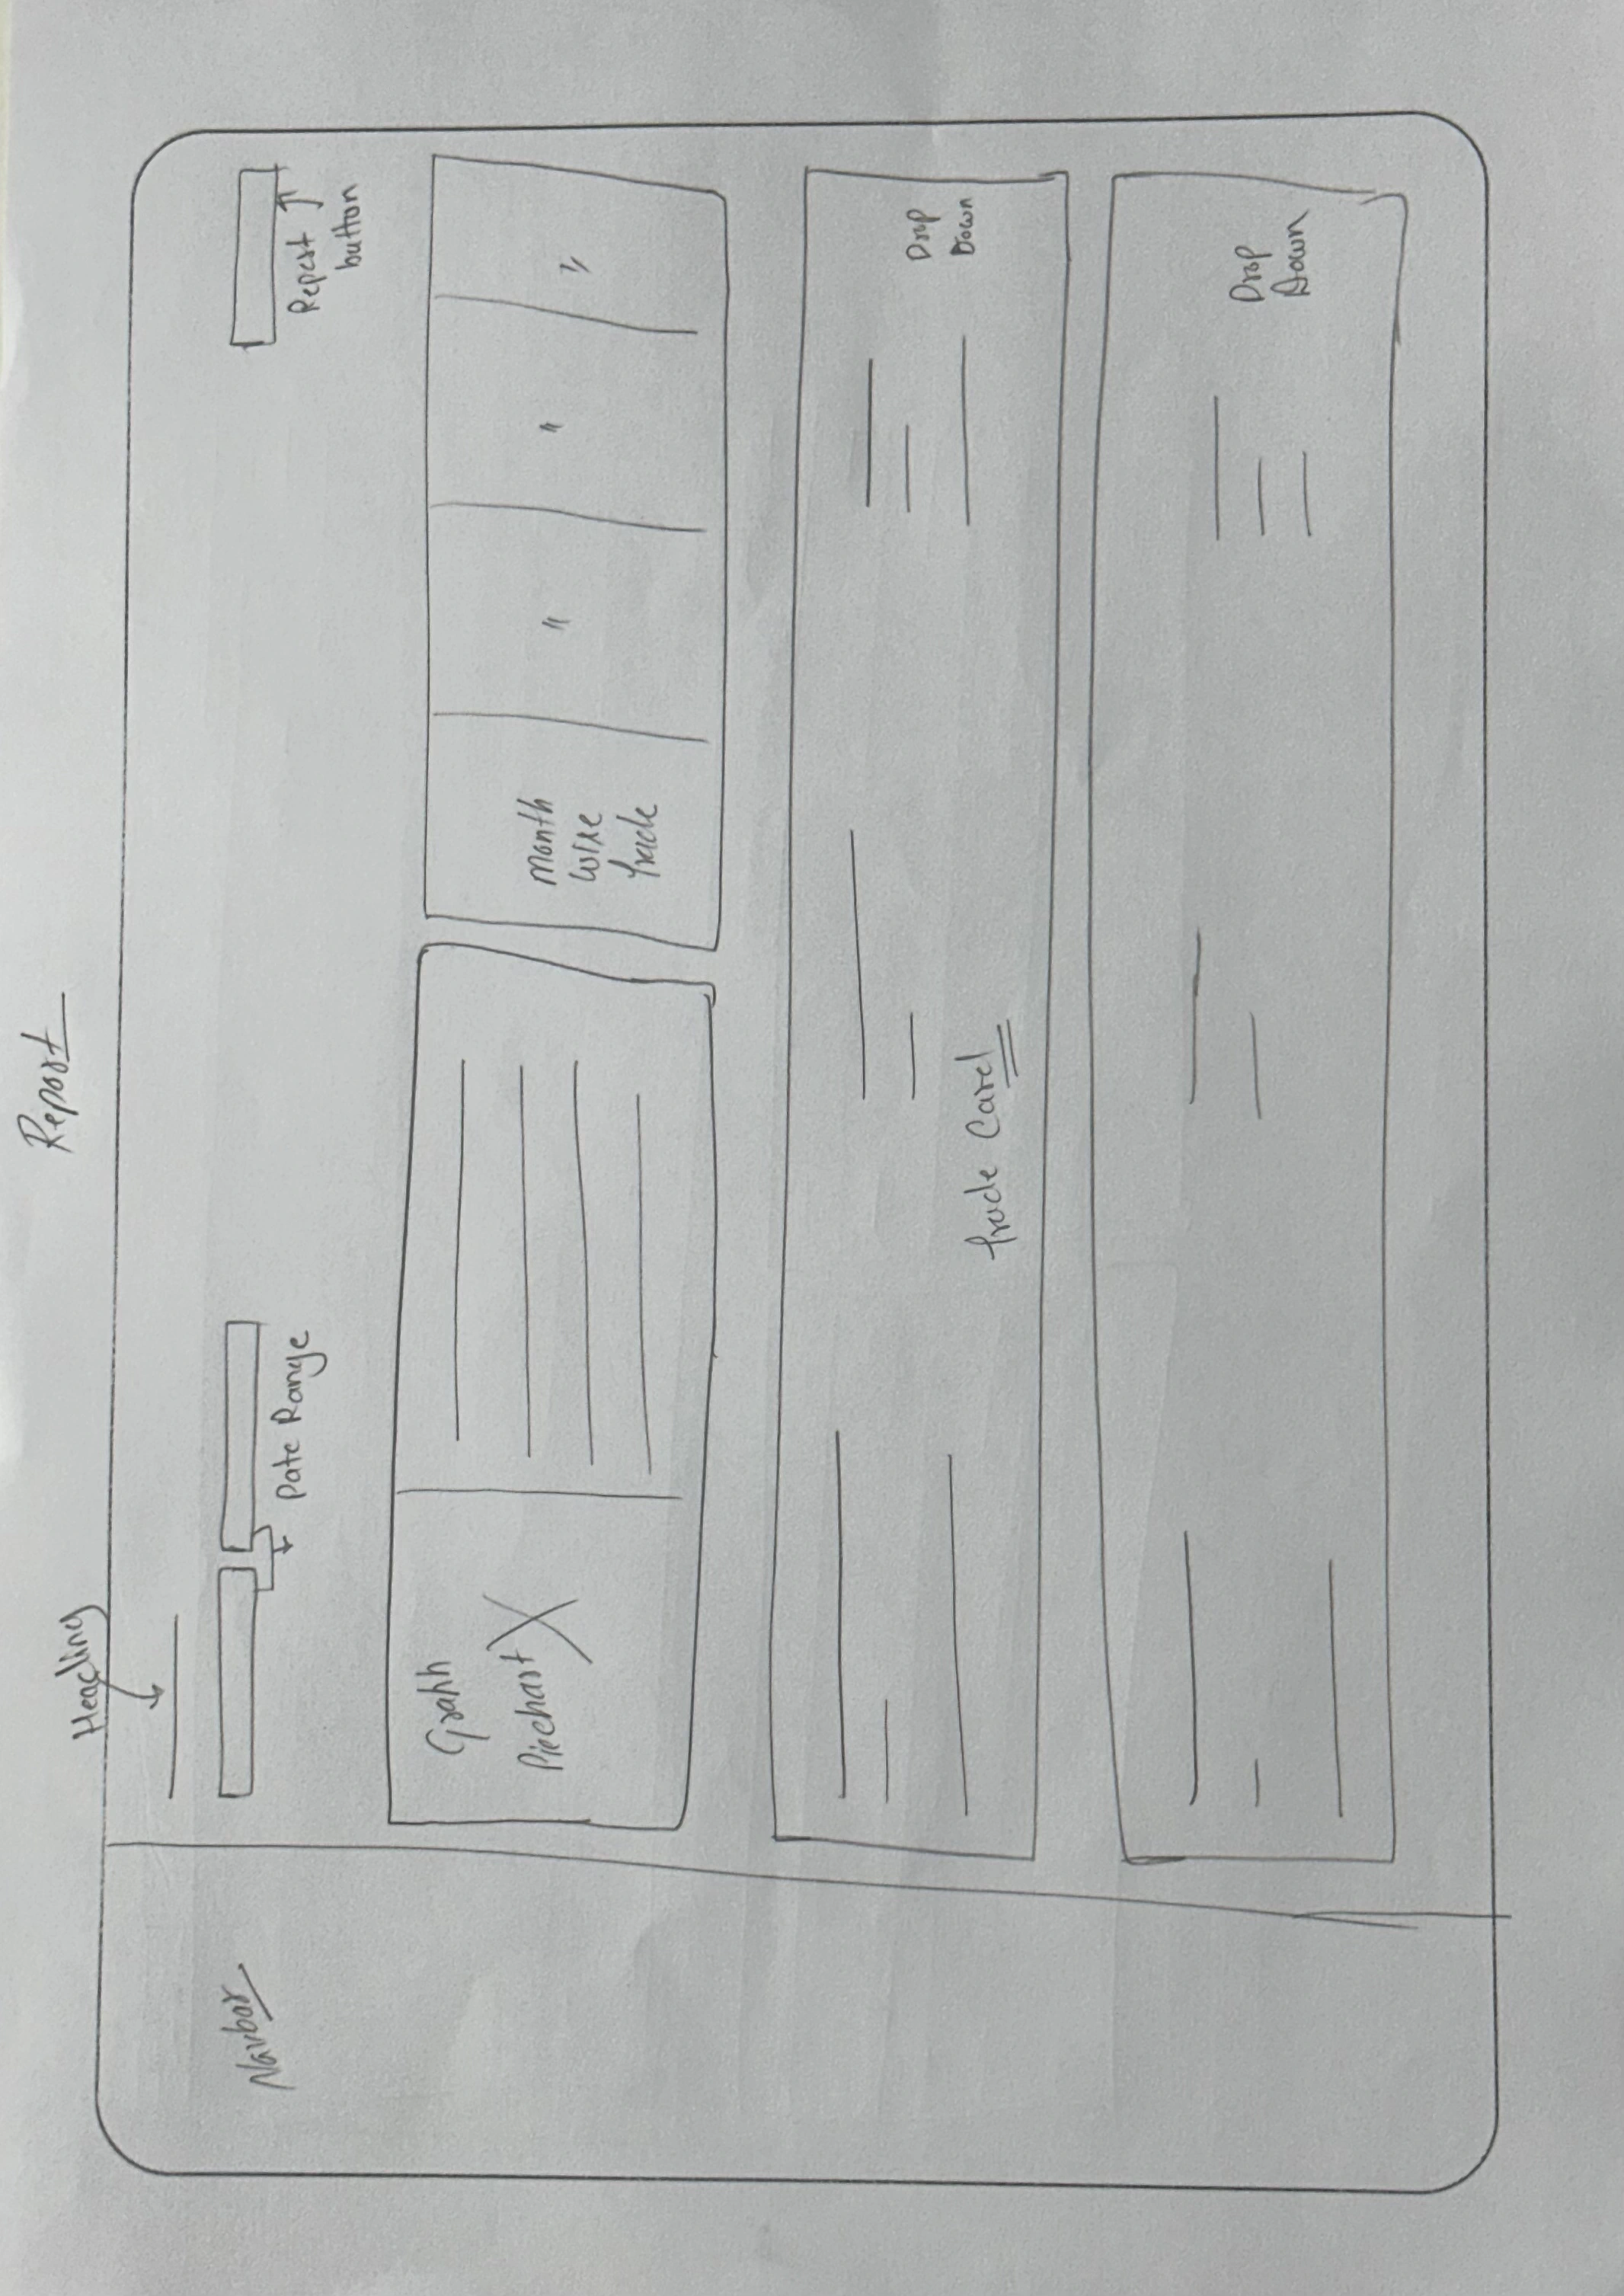 Report
Heading
Navbar
Date Range
Repost
button
Grahh
Piechart
Month
wise
trade
"
"
"
Drop
Down
trade Card
Drop
Down